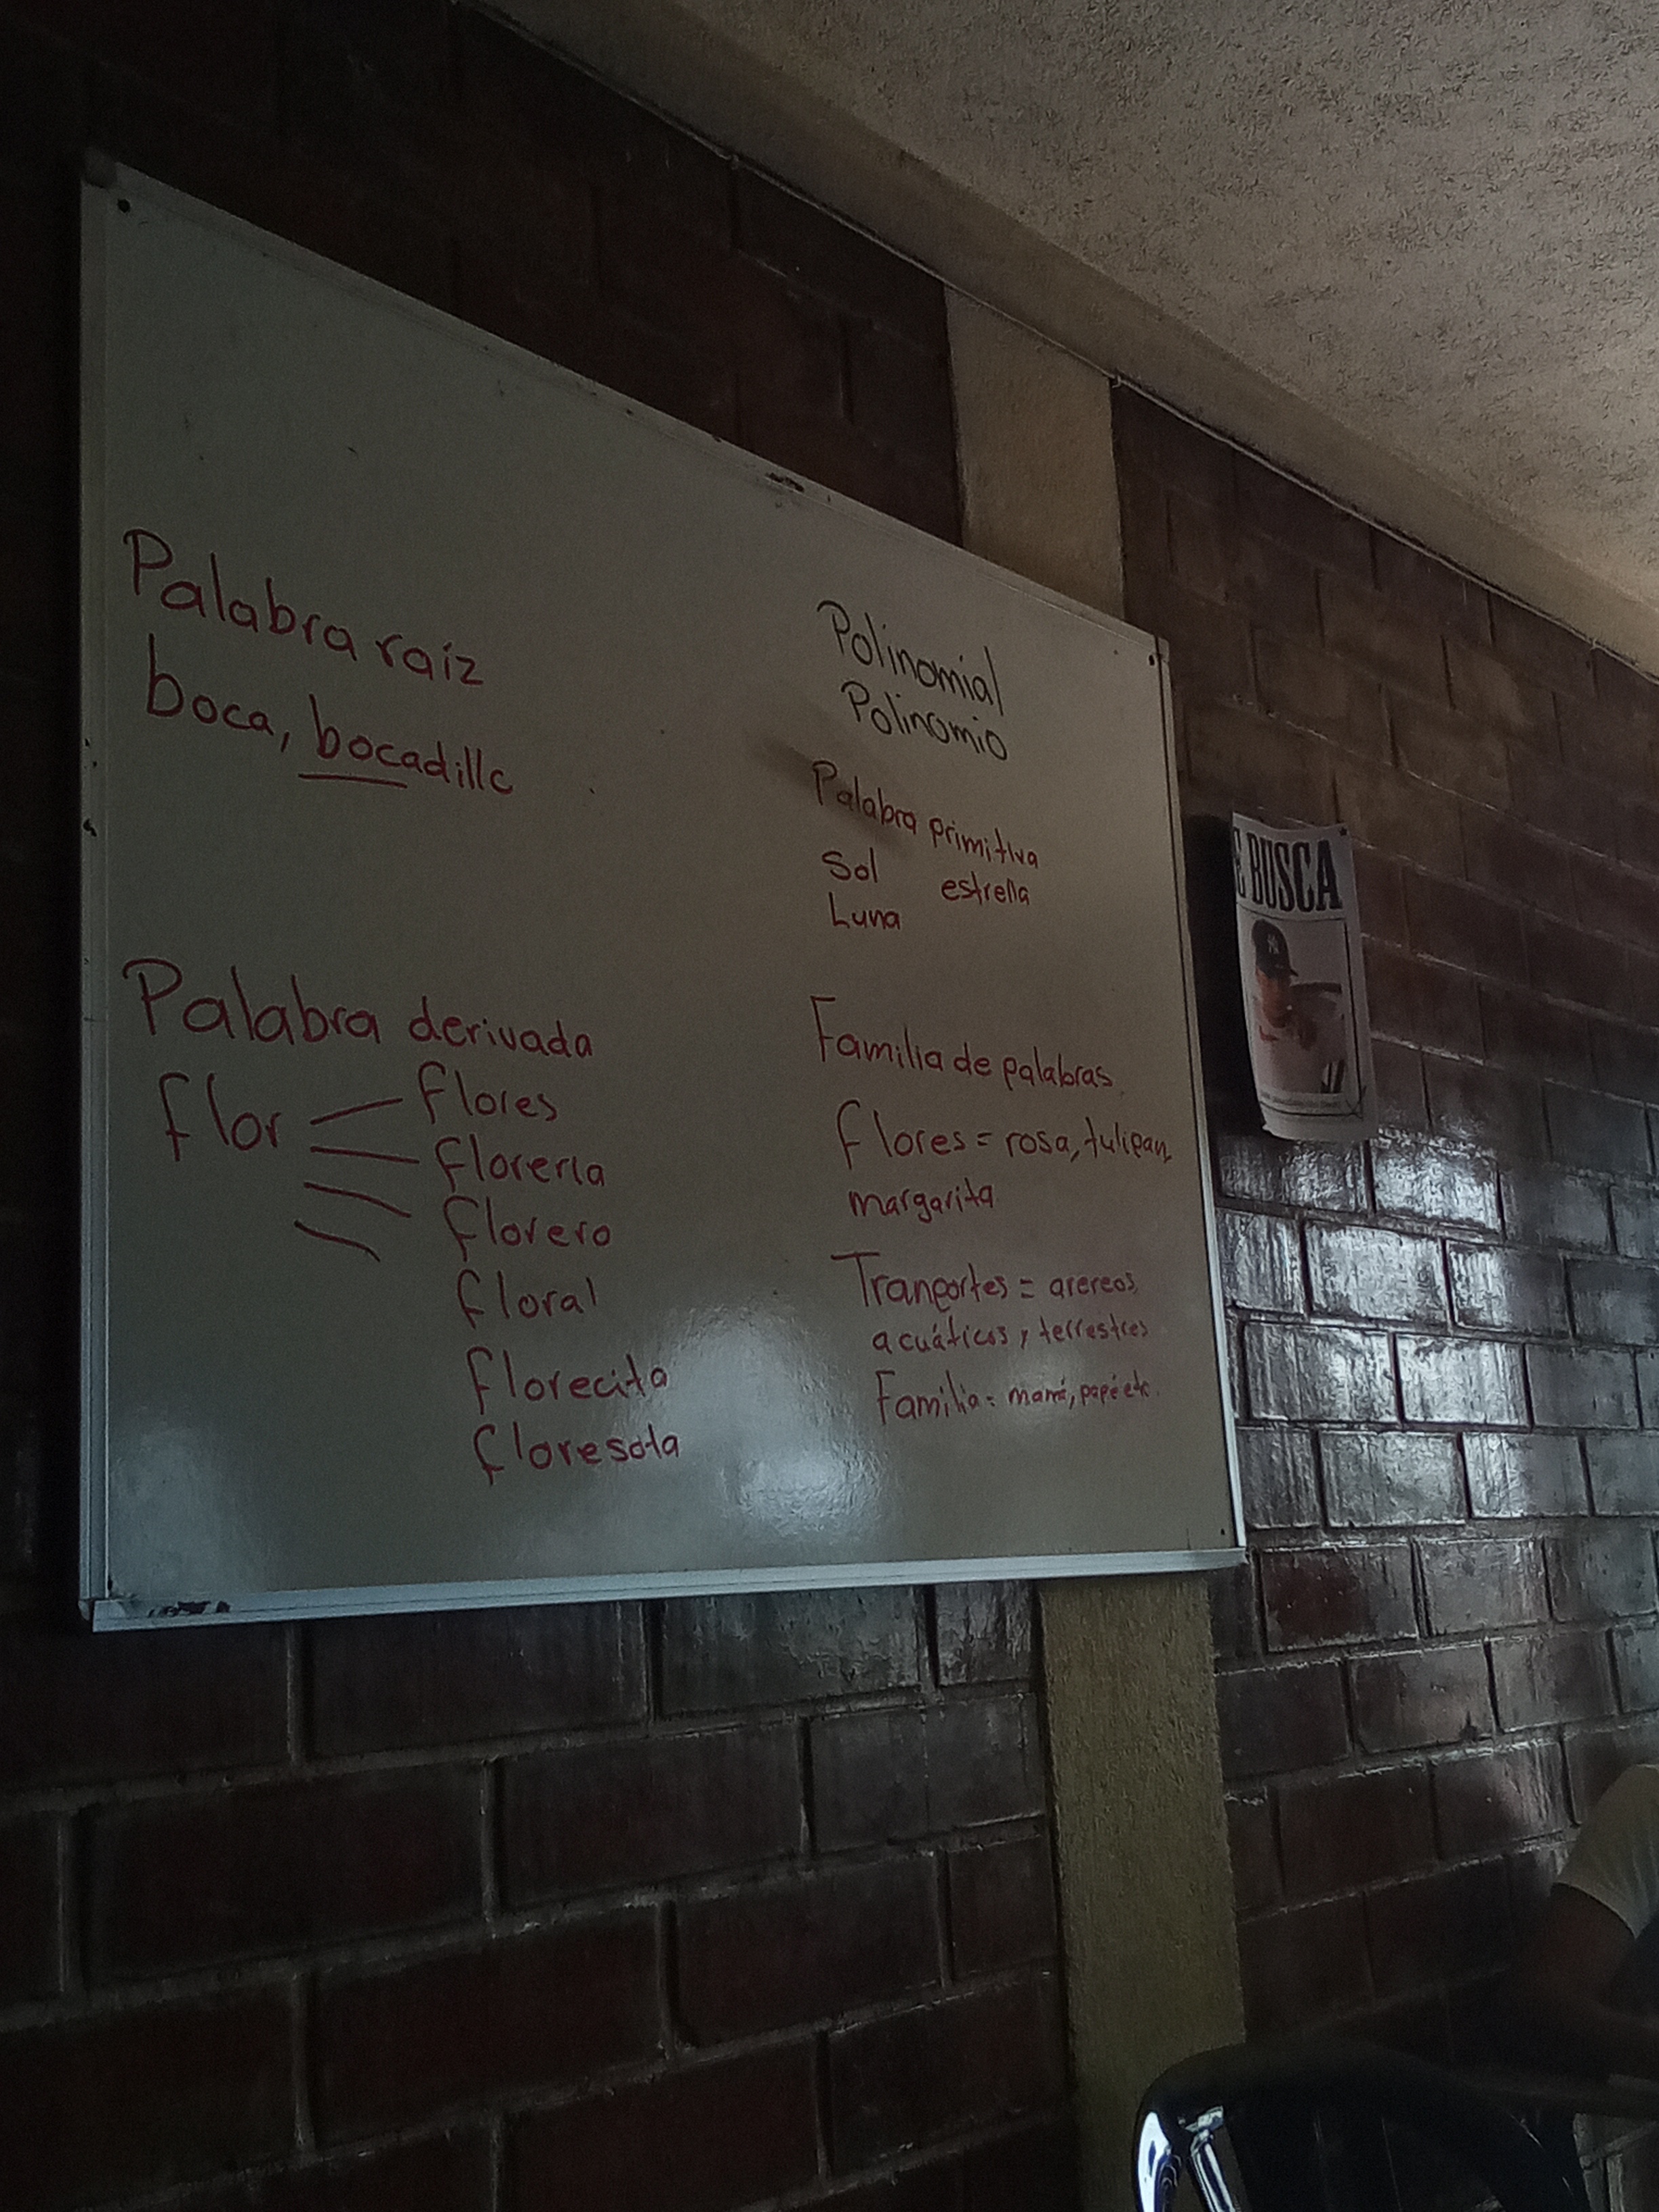 Palabra raíz
boca, bocadillo
Palabra derivada
flor
flores
florería
florero
floral
florecita
floresota
Polinomial
Polinomio
Palabra primitiva
Sol estrella
Luna
Familia de palabras
flores = rosa, tulipan,
margarita
Tranportes = arereos,
acuáticos, terrestres
Familia = mamá, papá etc.
E BUSCA